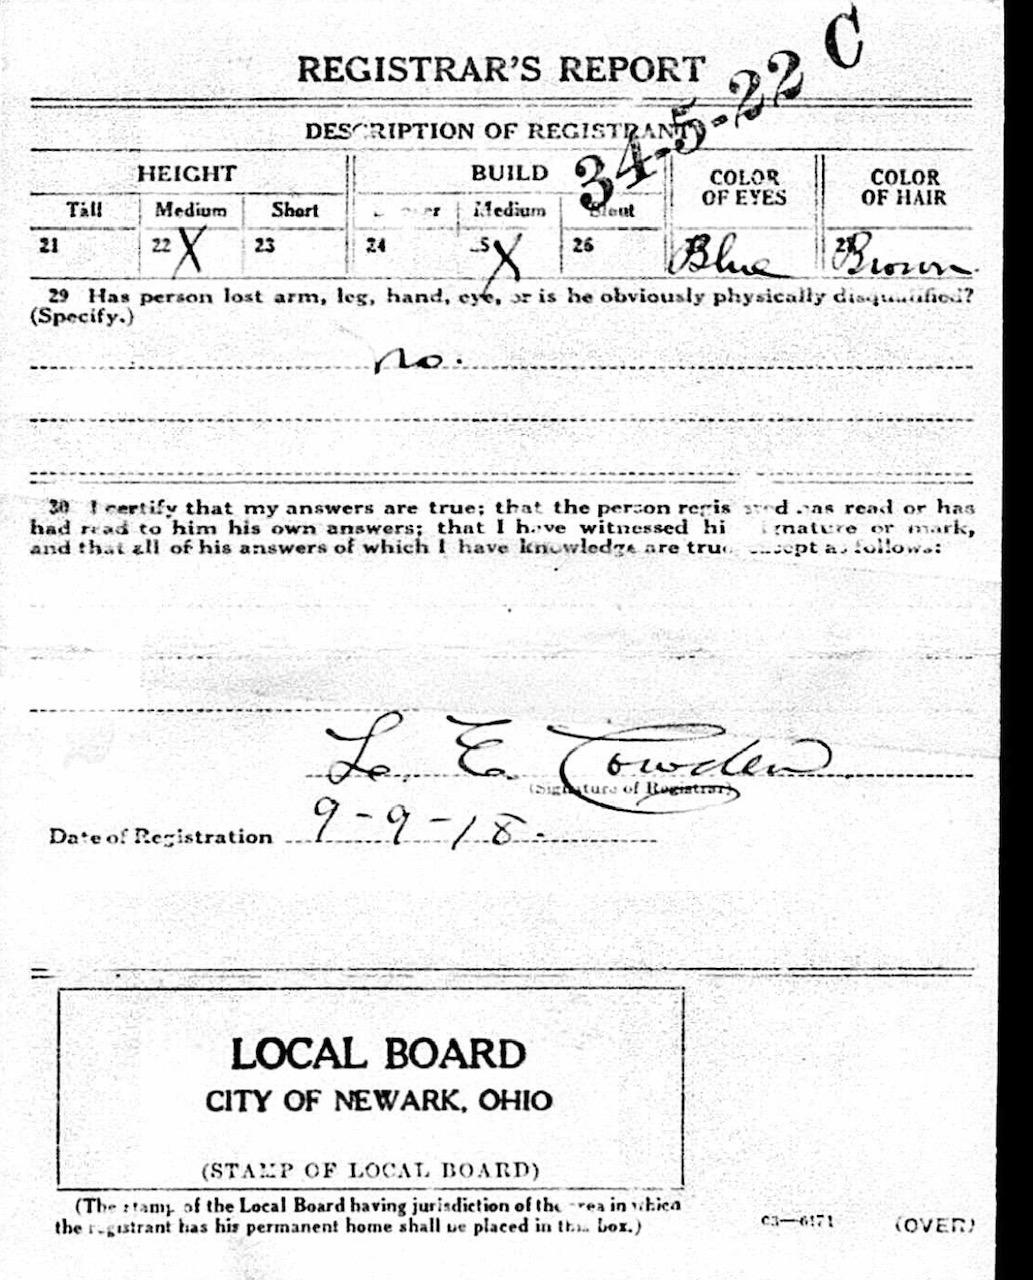 REGISTRAR'S REPORT
34-5-22 C
DESCRIPTION OF REGISTRANT
HEIGHT BUILD COLOR OF EYES COLOR OF HAIR
Tall Medium Short Medium Stout
21 22 X 23 24 25 X 26 Blue 28 Brown
29 Has person lost arm, leg, hand, eye, or is he obviously physically disqualified?
(Specify.)
No.
30 I certify that my answers are true; that the person registered has read or has
had read to him his own answers; that I have witnessed his signature or mark,
and that all of his answers of which I have knowledge are true, except as follows:
L. E. Cowden
(Signature of Registrar)
Date of Registration 9-9-18.
LOCAL BOARD
CITY OF NEWARK, OHIO
(STAMP OF LOCAL BOARD)
(The stamp of the Local Board having jurisdiction of the area in which
the registrant has his permanent home shall be placed in this box.)
03—6171 (OVER)